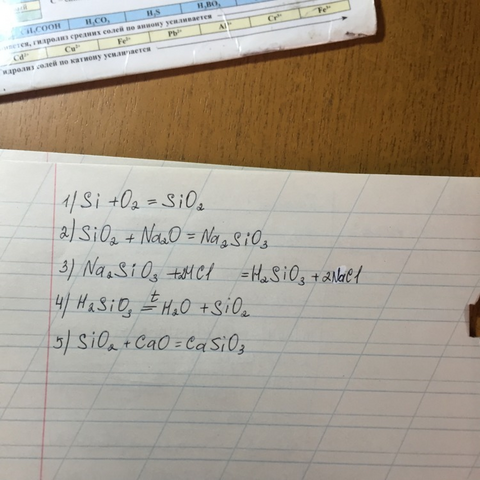 CH₃COOH H₂CO₃ H₂S H₃BO₃
гидролиз средних солей по аниону усиливается
Cd²⁺ Cu²⁺ Fe²⁺ Pb²⁺ Al³⁺ Cr³⁺ Fe³⁺
гидролиз солей по катиону усиливается
1) Si + O₂ = SiO₂
2) SiO₂ + Na₂O = Na₂SiO₃
3) Na₂SiO₃ + 2HCl = H₂SiO₃ + 2NaCl
4) H₂SiO₃ t= H₂O + SiO₂
5) SiO₂ + CaO = CaSiO₃